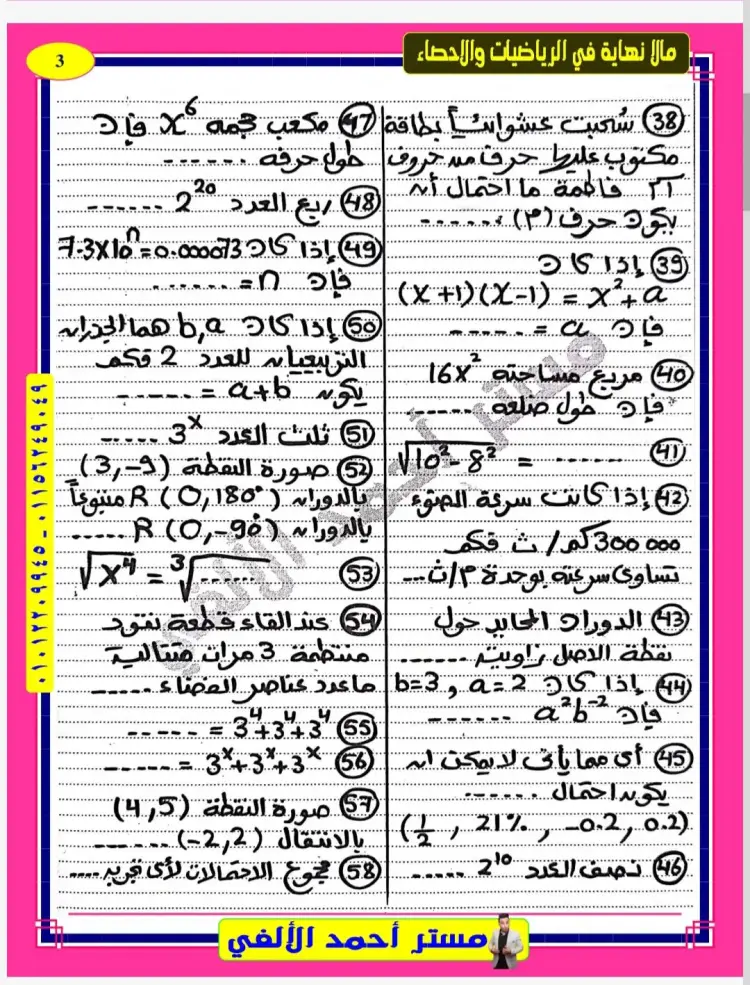 مالا نهاية في الرياضيات والاحصاء
3
(38) سُحبت عشوائياً بطاقة
مكتوب عليها حرف من حروف
كلمة فاطمة ما احتمال أن
يكون حرف (م) ......
(39) إذا كان
(x+1)(x-1) = x²+a
فإن a = ......
(40) مربع مساحته 16x²
فإن طول ضلعه ......
(41) √10²-8² = ......
(42) إذا كانت سرعة الضوء
300 000 كم/ث فكم
تساوى سرعته بوحدة م/ث...
(43) الدوران المحايد حول
نقطة الاصل زاويته ......
(44) إذا كان a=2 , b=3
فإن a²b⁻² ......
(45) أى مما يأتى لا يمكن أن
يكون احتمال ......
(1/2 , 21% , -0.2 , 0.2)
(46) نصف العدد 2¹⁰ .....
(47) مكعب حجمه x⁶ فإن
طول حرفه ......
(48) ربع العدد 2²⁰ ......
(49) إذا كان 7.3x10ⁿ=0.000073
فإن n= ......
(50) إذا كان a , b هما الجذران
التربيعيان للعدد 2 فكم
يكون a+b = ......
(51) ثلث العدد 3ˣ .....
(52) صورة النقطة (3,-9)
بالدوران R(0,180°) متبوعاً
بالدوران R(0,-90°) .....
(53) √x⁴ = ³√......
(54) عند القاء قطعة نقود
منتظمة 3 مرات متتالية
ما عدد عناصر الفضاء .....
(55) 3⁴+3⁴+3⁴ = ......
(56) 3ˣ+3ˣ+3ˣ = ......
(57) صورة النقطة (4,5)
بالانتقال (-2,2) ......
(58) مجموع الاحتمالات لأى تجربه ....
مستر أحمد الألفي
٠١٠١٢٢٠٩٩٤٥ - ٠١١٥٦٢٤٩٠٤٩
مستر أحمد الألفي